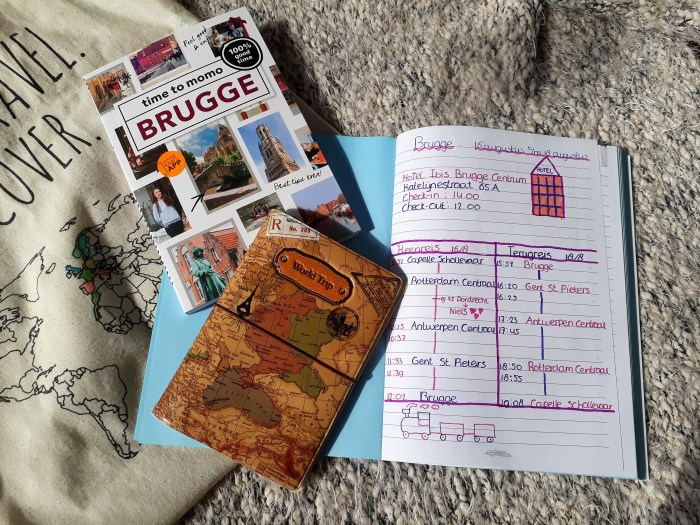 RAVEL.
COVER.
Feel good
100%
good
time
time to momo
BRUGGE
APP
Best tips ever!
R
No.
World Trip
Brugge
HOTEL
Hotel Ibis Brugge Centrum
Katelijnestraat 65A
Check-in : 14.00
Check-out: 12.00
Heenreis 16/8
Capelle Schollevaar
Rotterdam Centraal
Dordrecht
Niels
Antwerpen Centraal
10:37
11:33 Gent St Pieters
11:39
Brugge
Terugreis 18/8
15:57 Brugge
16:20 Gent St Pieters
16:23
17:23 Antwerpen Centraal
17:45
18:50 Rotterdam Centraal
18:55
19:08 Capelle Schollevaar